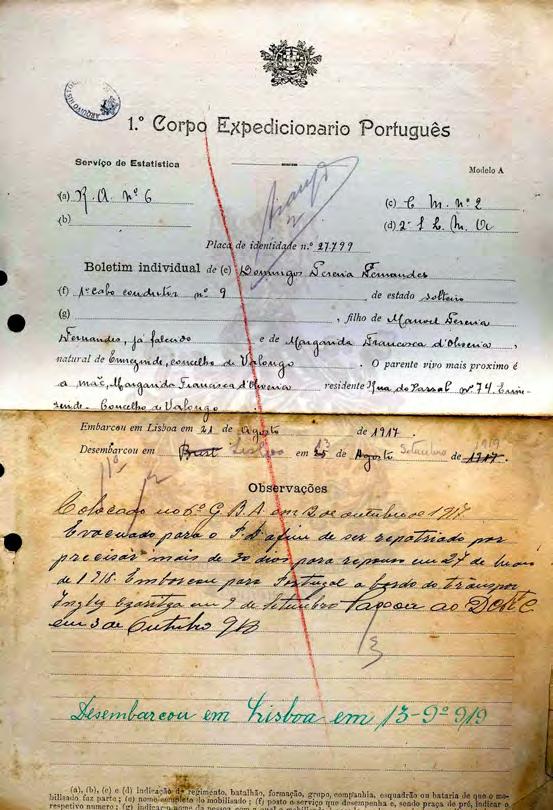 ARQUIVO
1.º Corpo Expedicionario Português
Serviço de Estatistica
Modelo A
(a) R. A. nº 6
(c) C M. nº 2
(b)
(d) 2ª
Placa de identidade n.º 27799
Boletim individual de (e) Domingos Pereira Fernandes
(f) 1º cabo condutor nº 9, de estado solteiro
(g) , filho de Manoel Pereira
Fernandes, já falecido e de Margarida Francisca d'Oliveira,
natural de Ermezinde, concelho de Valongo. O parente vivo mais proximo é
a mãe, Margarida Francisca d'Oliveira residente Rua do Passal nº 74 Erme-
zinde - Concelho de Valongo
Embarcou em Lisboa em 21 de Agosto de 1917.
Desembarcou em Brest Lisboa em 25 13 de Agosto Setembro de 1917 1919.
Observações
Colocado no 6º G B A em 2 de outubro de 1917.
Evacuado para o afim de ser repatriado por
precisar mais de 30 dias para repouso em 27 de
de 1918. Embarcou para Portugal a bordo do transpor
Inglez em 9 de Setembro Passou ao
em 3 de Outubro 918
Desembarcou em Lisboa em 13-9º 919
(a), (b), (c) e (d) Indicação do regimento, batalhão, formação, grupo, companhia, esquadrão ou bataria de que o mo-
bilisado faz parte; (e) nome completo do mobilisado; (f) posto e serviço que desempenha e, sendo praça de pré, indicar o
respetivo numero; (g)